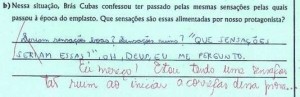 b) Nessa situação, Brás Cubas confessou ter passado pelas mesmas sensações pelas quais
passou à época do emplasto. Que sensações são essas alimentadas por nosso protagonista?
Seriam sensações boas? Sensações ruins? "QUE SENSAÇÕES
SERIAM ESSAS?", OH, DEUS, EU ME PERGUNTO.
Eu mereço! Estou tendo uma sensação
tão ruim ao iniciar a correção desta prova...